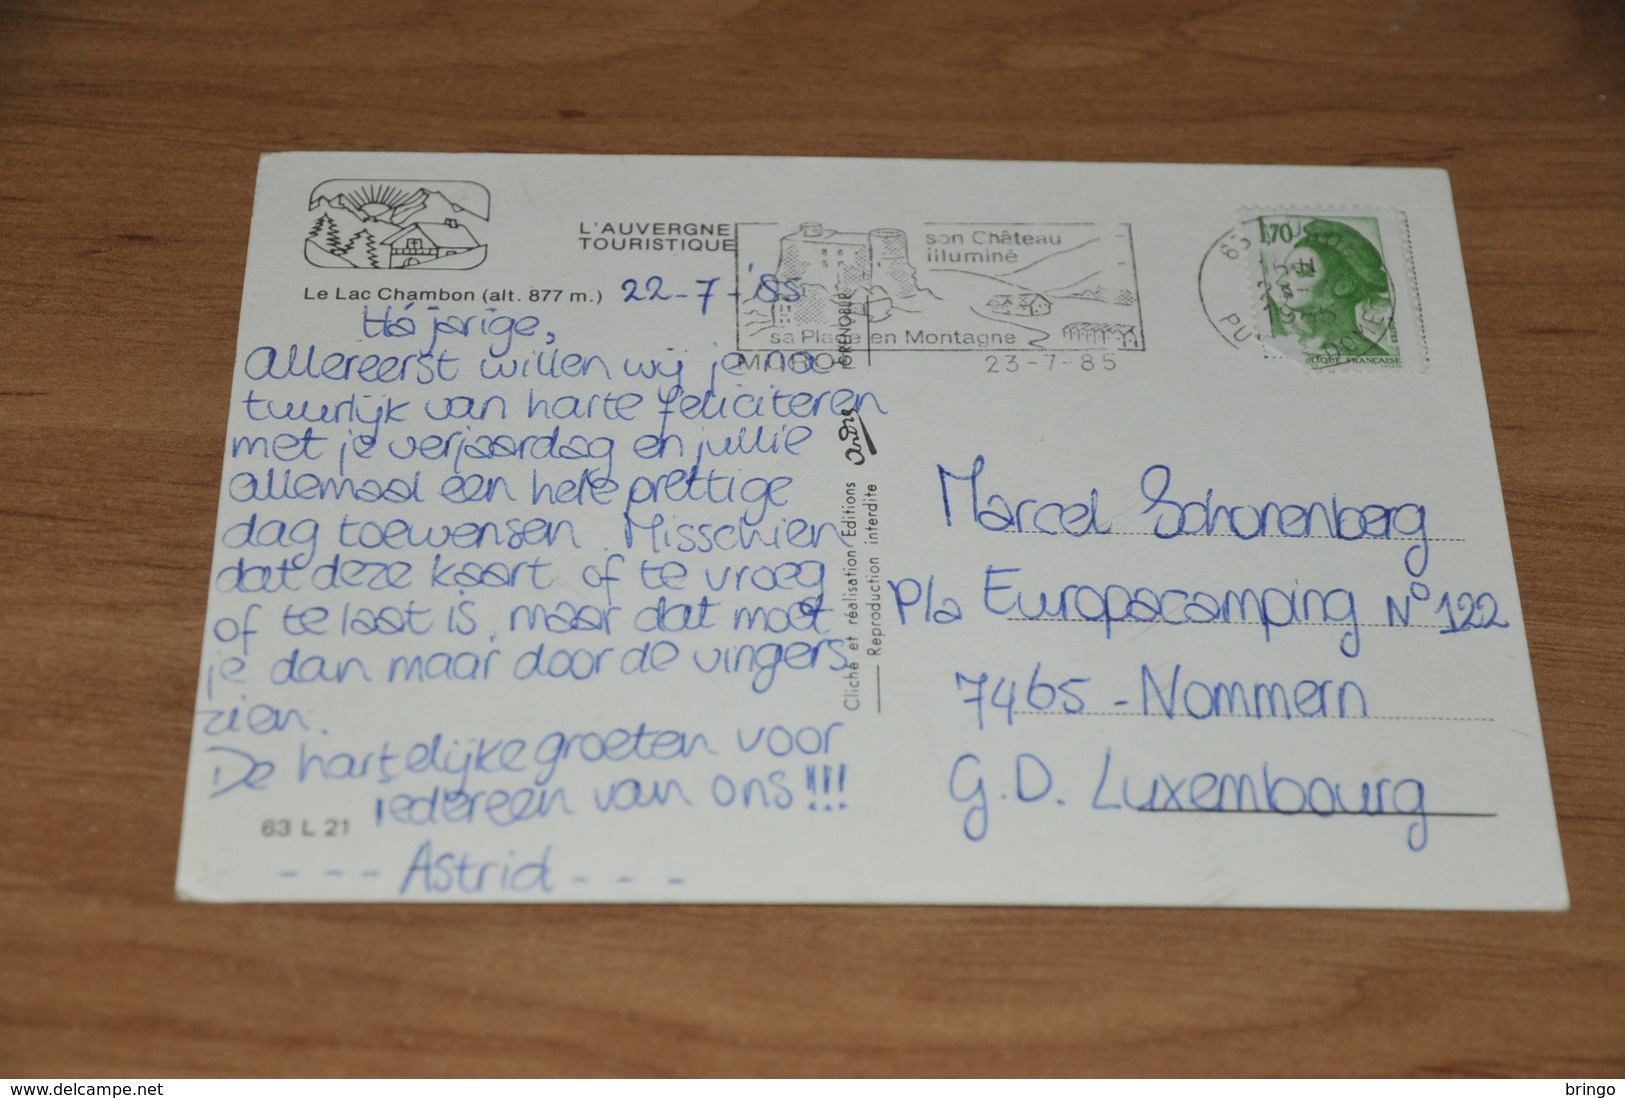 L'AUVERGNE
TOURISTIQUE
Le Lac Chambon (alt. 877 m.)
22-7-'85
Há jarige,
allereerst willen wij je na
tuurlijk van harte feliciteren
met je verjaardag en jullie
allemaal een hele prettige
dag toewensen. Misschien
dat deze kaart of te vroeg
of te laat is, maar dat moet
je dan maar door de vingers
zien.
De hartelijke groeten voor
iedereen van ons!!!
63 L 21
--- Astrid ---
son Château
illuminé
sa Plage en Montagne
MUROL
23-7-85
GRENOBLE
André
Cliché et réalisation Editions
Reproduction interdite
1,70
63
PUY DOME
REPUBLIQUE FRANÇAISE
Marcel Schorenberg
P/a Europacamping N° 122
7465 - Nommern
G.D. Luxembourg
© www.delcampe.net
bringo